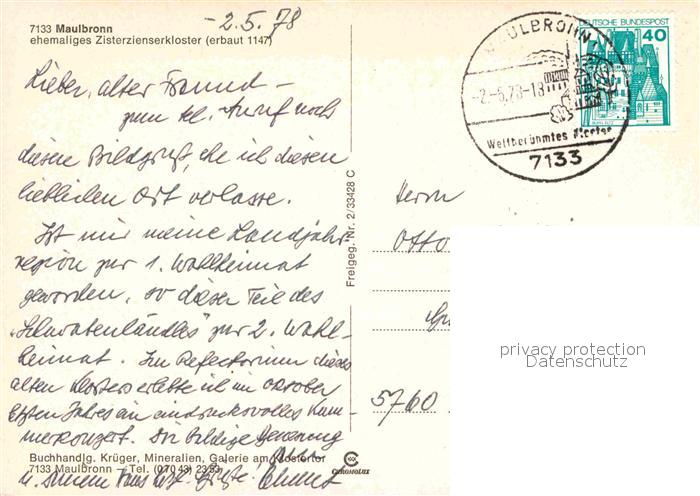 -2.5.78
7133 Maulbronn
ehemaliges Zisterzienserkloster (erbaut 1147)
MAULBRONN
-2.-5.78-18
Weltberühmtes Kloster
7133
DEUTSCHE BUNDESPOST
40
Lieber, alter Freund –
zum tel. Anruf noch
diesen Bildgruß, ehe ich diesen
lieblichen Ort verlasse.
Ist mir meine Landjahr-
region zur 1. Wahlheimat
geworden, so dieser Teil des
"Schwabenländles" zur 2. Wahl-
heimat. Im Refectorium dieses
alten Klosters erlebte ich im Oktober
letzten Jahres ein eindrucksvolles Kam-
merkonzert. Dir baldige Genesung
u. Grüße
Freigeg. Nr. 2/33428 C
Herrn
Otto
5760
privacy protection
Datenschutz
Buchhandlg. Krüger, Mineralien, Galerie am Klostertor
7133 Maulbronn – Tel. (070 43) 23 53
CHROMOLUX